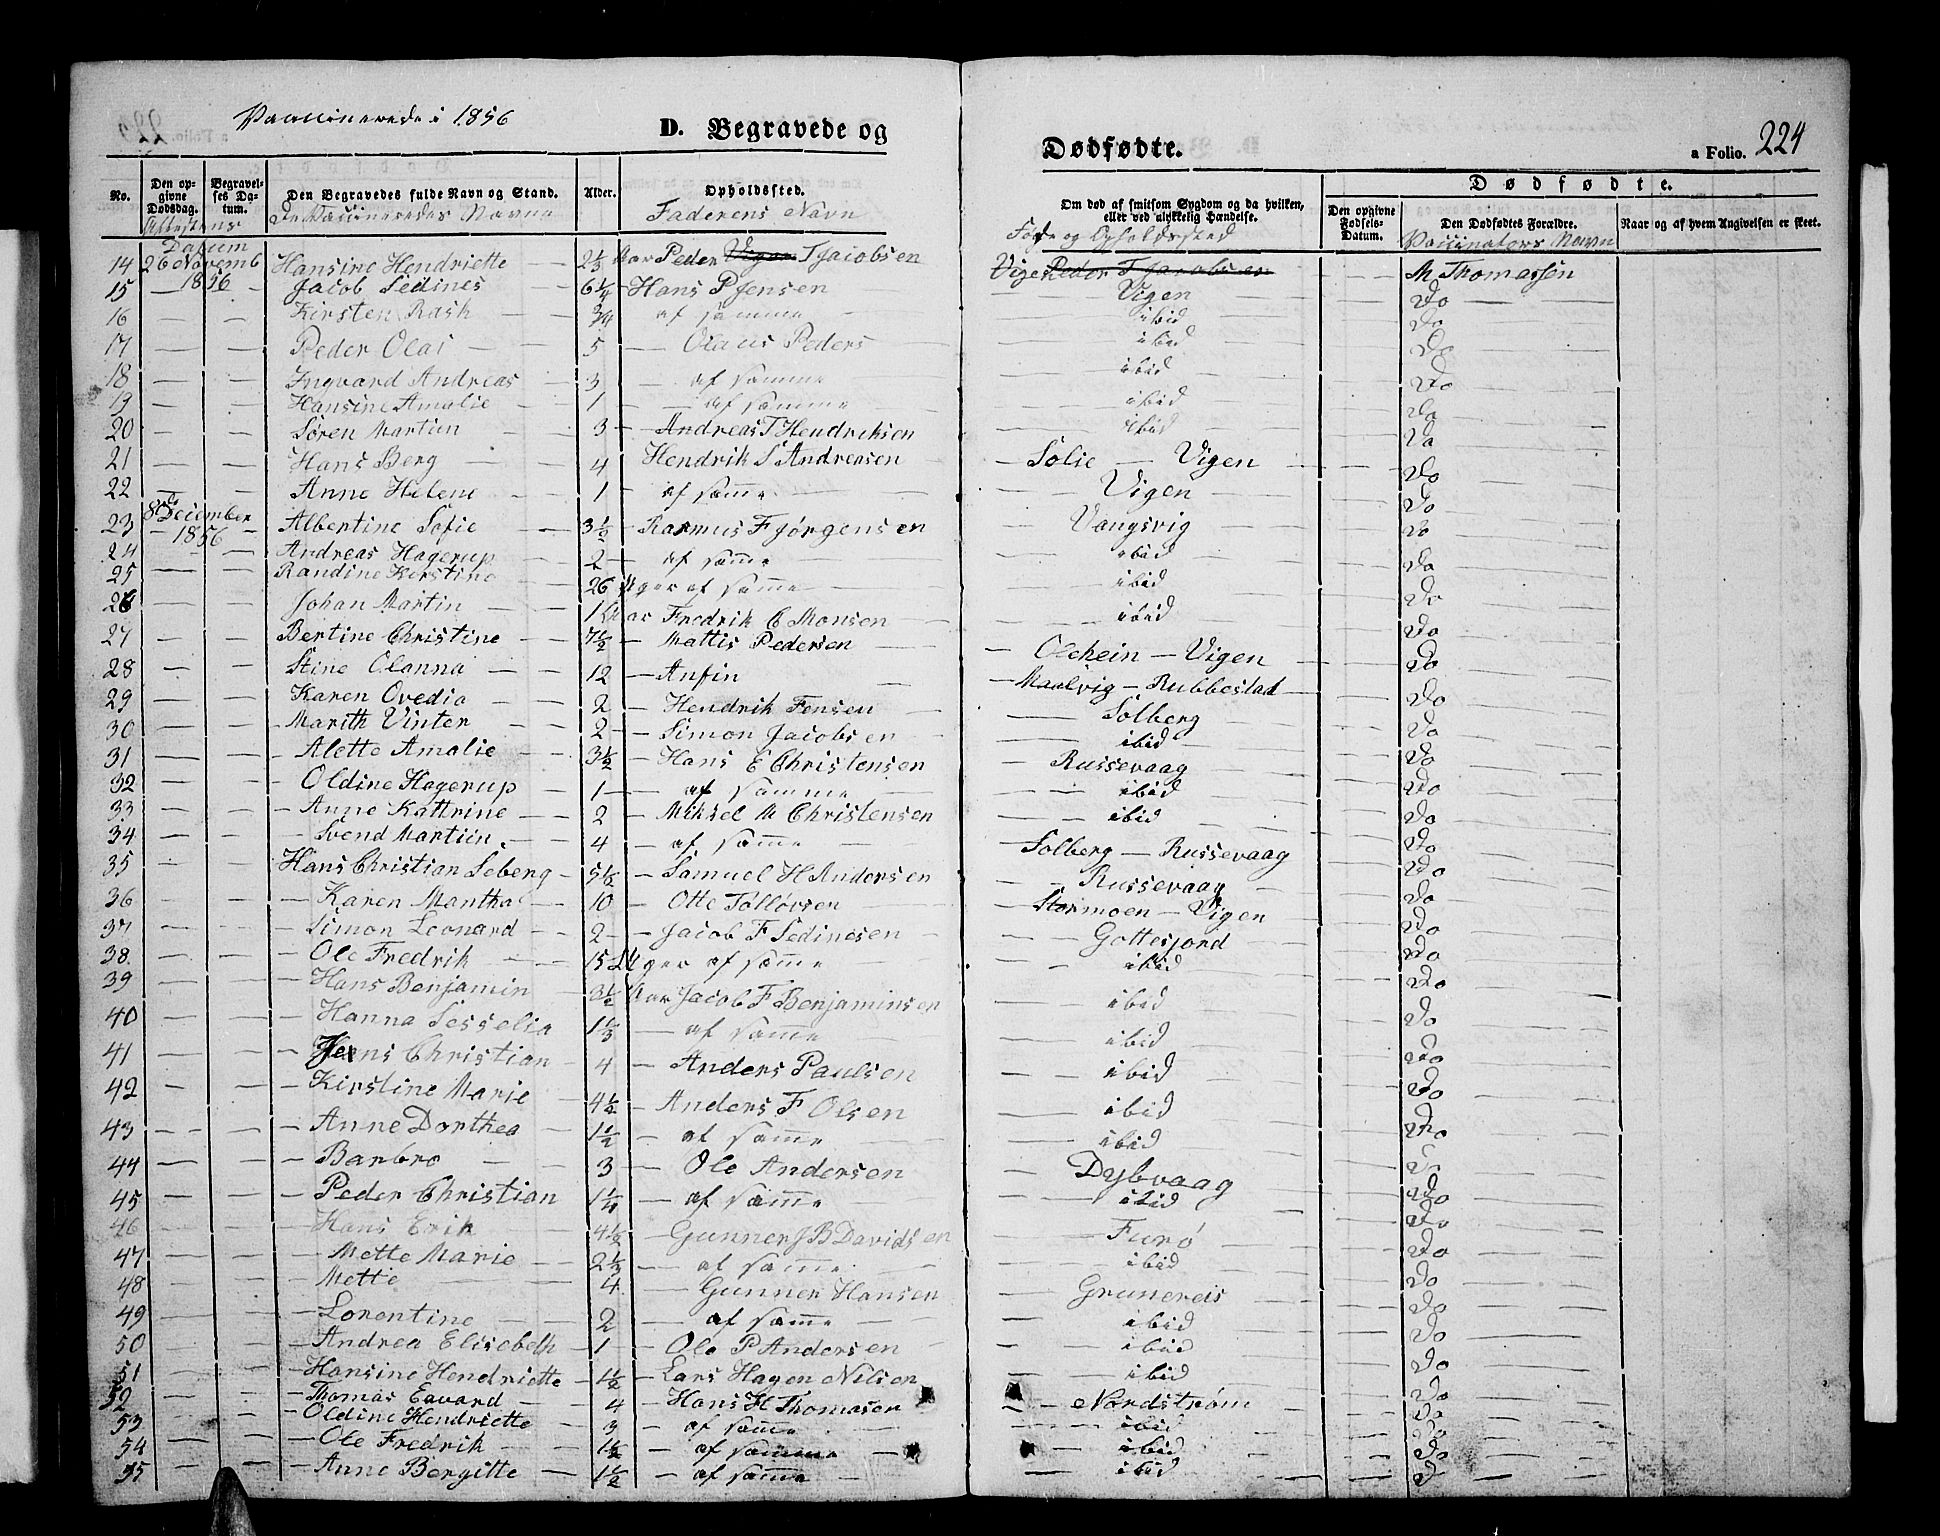 Vaccinerede i 1856
D. Begravede og
Dødfødte.
a Folio. 224
No. Den opgivne Dødsdag. Begravelses Datum. Den Begravedes fulde Navn og Stand. Alder. Opholdssted. Om død af smitsom Sygdom og da hvilken, eller ved ulykkelig Hændelse. Dødfødte. Den opgivne Fødsels-Datum. Den Dødfødtes Forældre. Naar og af hvem Angivelsen er skeet.
Attestens Datum De Vaccineredes Navne Faderens Navn Føde og Opholdssted Vaccinators Navn
14 26 Novemb 1856 Hansine Hendriette 2 1/3 Aar Peder T Jacobsen Vigen Peder T Jacobsen M Thomassen
15 — — Jacob Sedines — 6 1/4 — Hans P Jensen — Vigen — Do
16 — — Kirsten Rash — 3/4 af samme — ibid — Do
17 — — Peder Olai — 5 — Olaus Peders — ibid — Do
18 — — Ingvard Andreas 3 — af samme — ibid — Do
19 — — Hansine Amalie — 1 — af samme — ibid — Do
20 — — Søren Martin — 3 — Andreas T Hendriksen — ibid — Do
21 — — Hans Berg — 4 Hendrik S Andreasen — Solie — Vigen — Do
22 — — Anne Helene — 1 — af samme — Vigen — Do
23 8de December 1856 — Albertine Sofie — 3 1/2 — Rasmus F Jørgensen — Vangsvig — Do
24 — — Andreas Hagerup — 2 — af samme — ibid — Do
25 — — Randine Kirstine 26 Uger af samme — ibid — Do
26 — — Johan Martin — 1 Aar Fredrik C Monsen — ibid — Do
27 — — Bertine Christine — 7 1/2 — Mattis Pedersen — Olehein — Vigen — Do
28 — — Stine Olanna — 12 — Anfin — Maalvig — Rubbestad — Do
29 — — Karen Ovedia — 2 — Hendrik Jensen — Solberg — Do
30 — — Marith Vinter — 2 — Simon Jacobsen — ibid — Do
31 — — Alette Amalie — 3 1/2 — Hans E Christensen — Russevaag — Do
32 — — Oldine Hagerup — 1 — af samme — ibid — Do
33 — — Anne Kathrine — 2 — Mikkel M Christensen — ibid — Do
34 — — Svend Martiin — 4 — af samme — Solberg — Russevaag — Do
35 — — Hans Christian Seberg — 5 1/2 — Samuel H Andersen — Russevaag — Do
36 — — Karen Mantha — 10 — Otte Tollevsen — Stormoen — Vigen — Do
37 — — Simon Leonard — 2 — Jacob F Sedinesen — Gottesjord — Do
38 — — Ole Fredrik — 15 Uger af samme — ibid — Do
39 — — Hans Benjamin — 3 1/2 Aar Jacob F Benjaminsen — ibid — Do
40 — — Hanna Sesselia 1 1/3 — af samme — ibid — Do
41 — — Jens Christian — 4 — Anders Paulsen — ibid — Do
42 — — Kirstine Marie — 4 1/2 — Anders F Olsen — ibid — Do
43 — — Anne Dorthea — 1 1/2 — af samme — ibid — Do
44 — — Barbro — 3 — Ole Andersen — Dybvaag — Do
45 — — Peder Christian 1 1/4 — af samme — ibid — Do
46 — — Hans Erik — 4 1/2 — Gunner J B Davidsen — Furø — Do
47 — — Mette Marie — 2 1/3 — af samme — ibid — Do
48 — — Mette — 4 — Gunner Hansen — Grunereis — Do
49 — — Lorentine — 2 — af samme — ibid — Do
50 — — Andrea Elisabeth — 1 — Ole P Andersen — ibid — Do
51 — — Hansine Hendriette — 1 1/2 — Lars Hagen Nilsen — ibid — Do
52 — — Thomas Edvard — 4 — Hans H Thomasen — Nordstrøm — Do
53 — — Oldine Hendriette 3 — af samme — ibid — Do
54 — — Ole Fredrik — 1 1/2 — af samme — ibid — Do
55 — — Anne Bergitte — 1 1/2 — af samme — ibid — Do